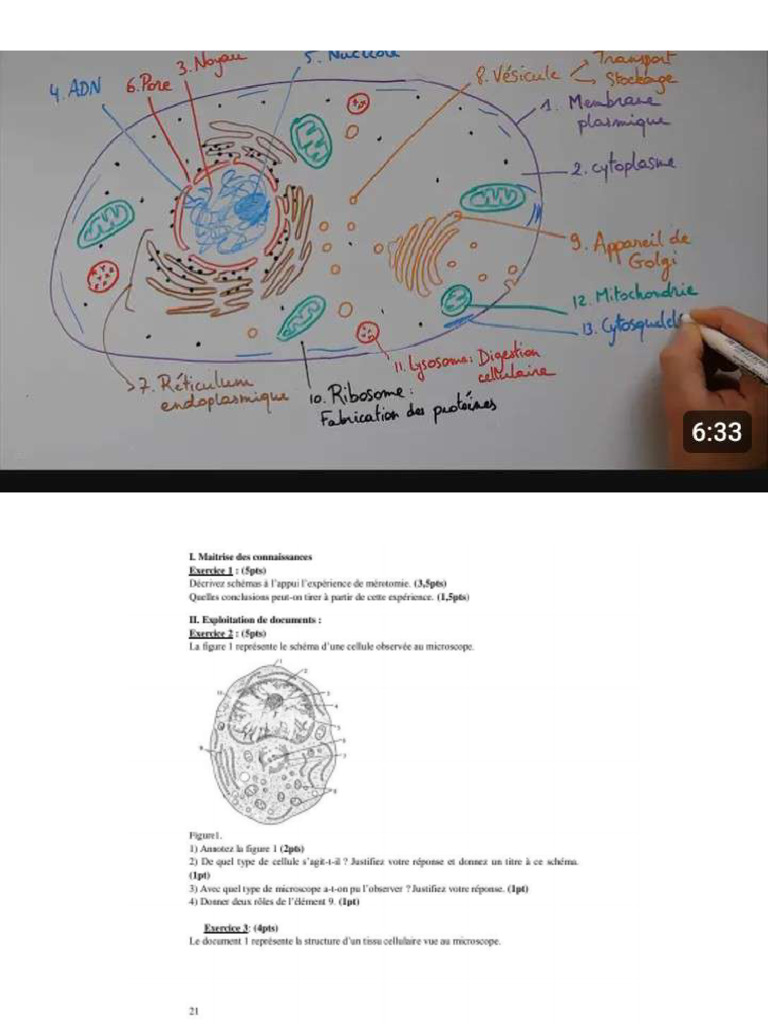 5. Nucléole
3. Noyau
4. ADN
6. Pore
8. Vésicule
Transport
Stockage
1. Membrane
plasmique
2. cytoplasme
9. Appareil de
Golgi
12. Mitochondrie
13. Cytosquele
11. Lysosome: Digestion
cellulaire
7. Réticulum
endoplasmique
10. Ribosome:
Fabrication des protéines
6:33
I. Maitrise des connaissances
Exercice 1 : (5pts)
Décrivez schémas à l'appui l'expérience de mérotomie. (3,5pts)
Quelles conclusions peut-on tirer à partir de cette expérience. (1,5pts)
II. Exploitation de documents :
Exercice 2 : (5pts)
La figure 1 représente le schéma d'une cellule observée au microscope.
1
2
3
4
5
6
7
8
9
10
Figure1.
1) Annotez la figure 1 (2pts)
2) De quel type de cellule s'agit-t-il ? Justifiez votre réponse et donnez un titre à ce schéma.
(1pt)
3) Avec quel type de microscope a-t-on pu l'observer ? Justifiez votre réponse. (1pt)
4) Donner deux rôles de l'élément 9. (1pt)
Exercice 3: (4pts)
Le document 1 représente la structure d'un tissu cellulaire vue au microscope.
21